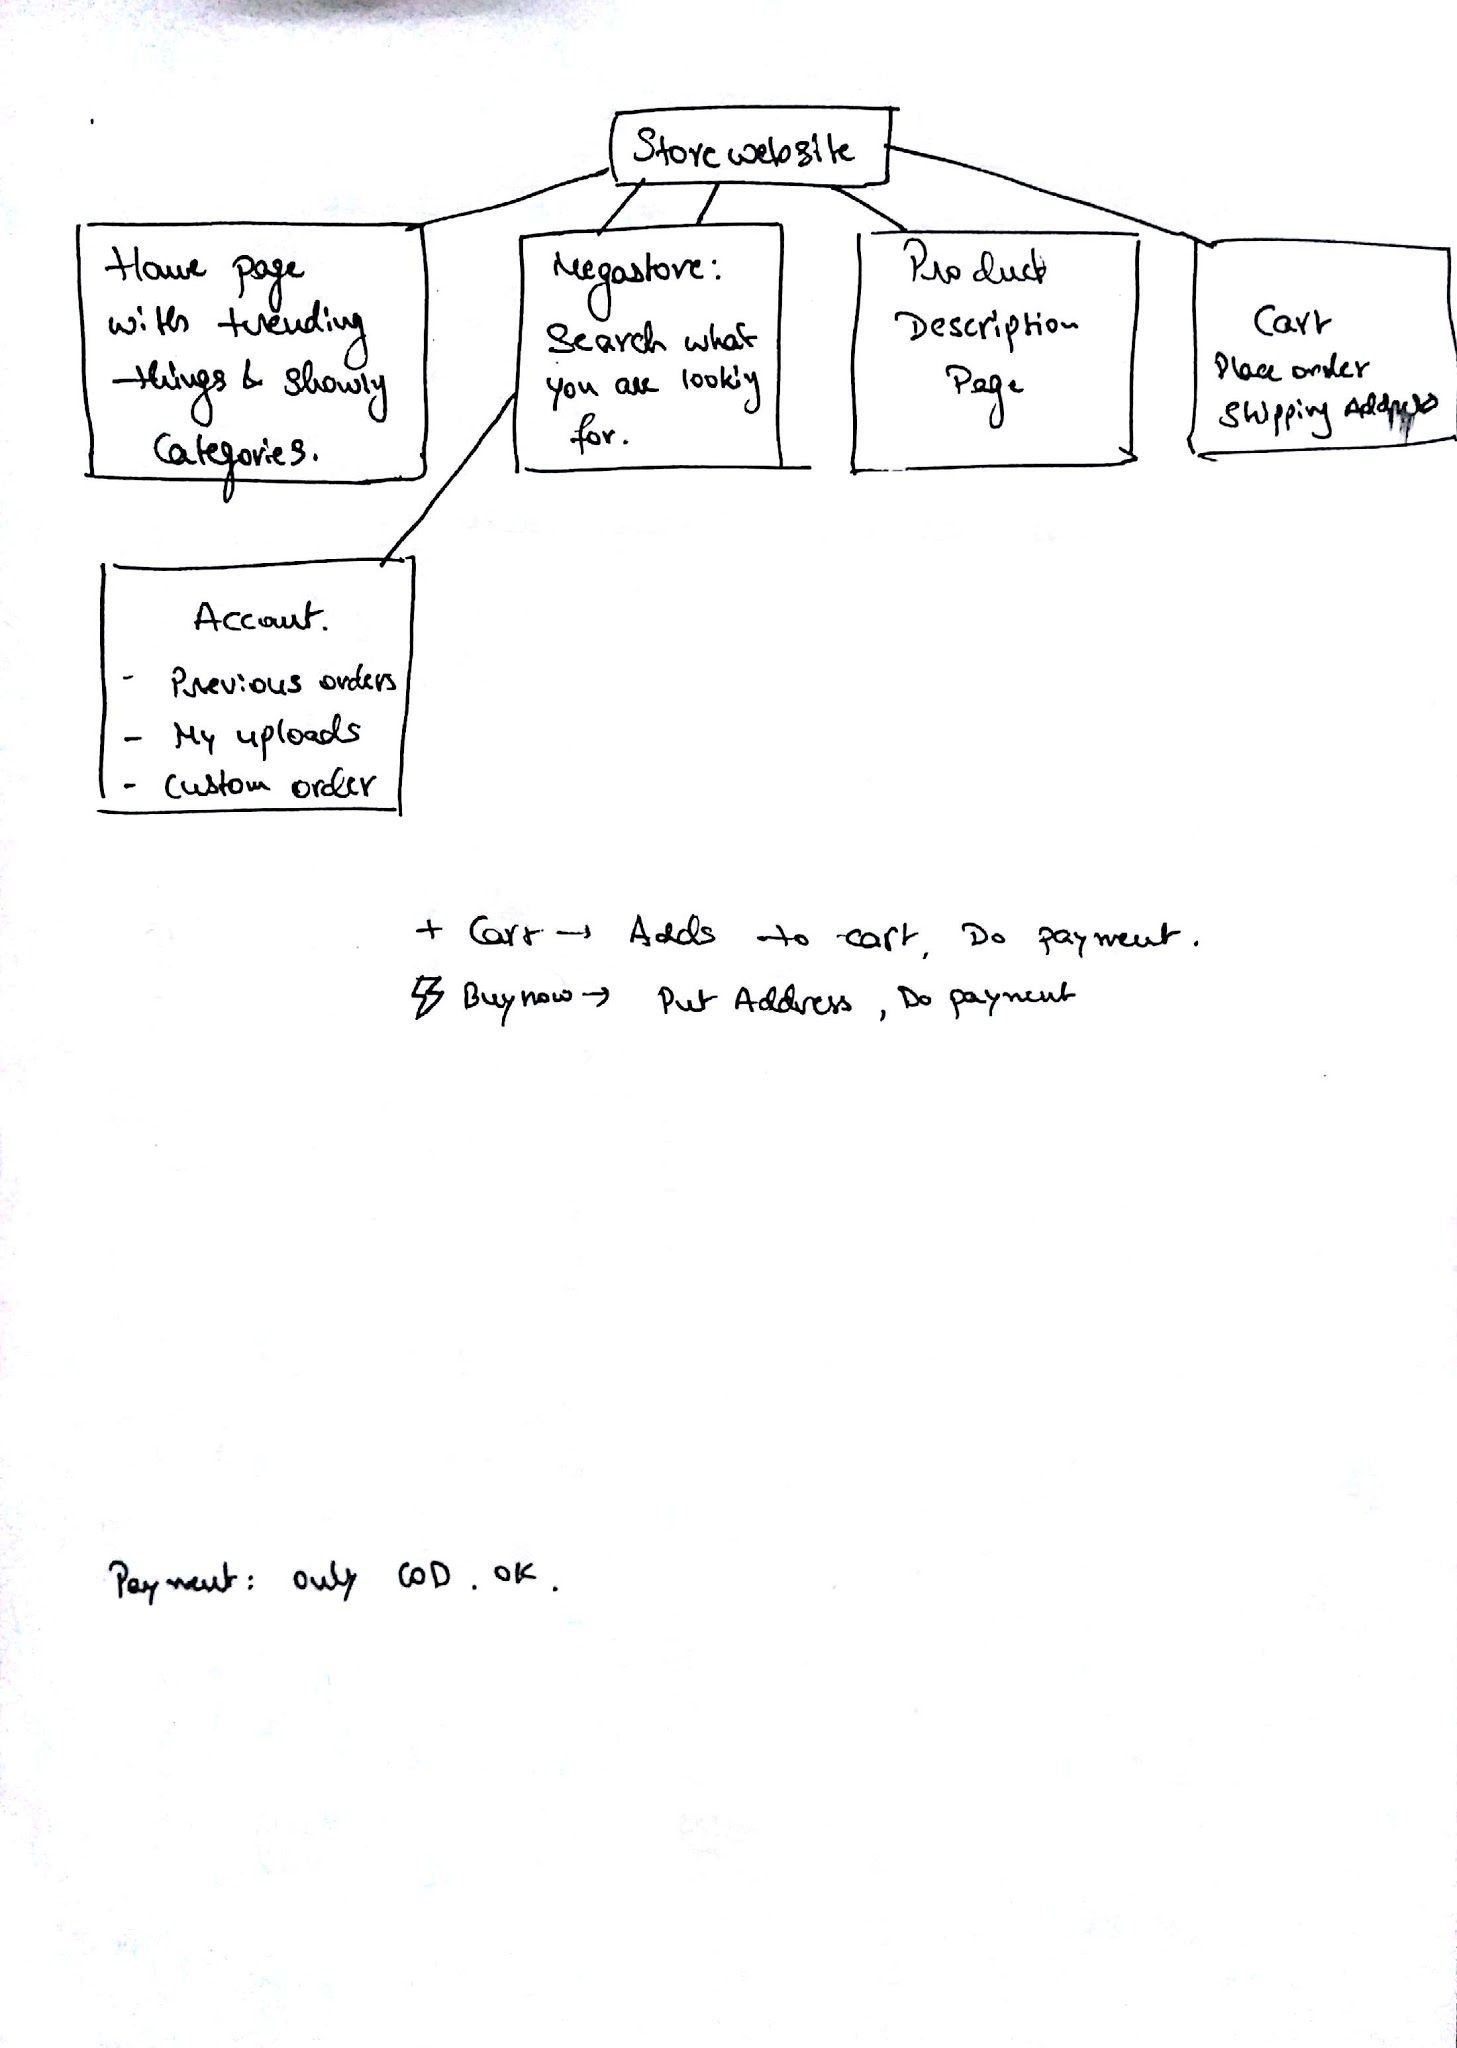 Store website
Home page
with trending
things & showly
Categories.
Megastore:
Search what
you are lookiy
for.
Product
Description
Page
Cart
Place order
Shipping Address
Account.
- Previous orders
- My uploads
- Custom order
+ Cart → Adds to cart, Do payment.
Buy now → Put Address, Do payment
Payment: only COD. OK.